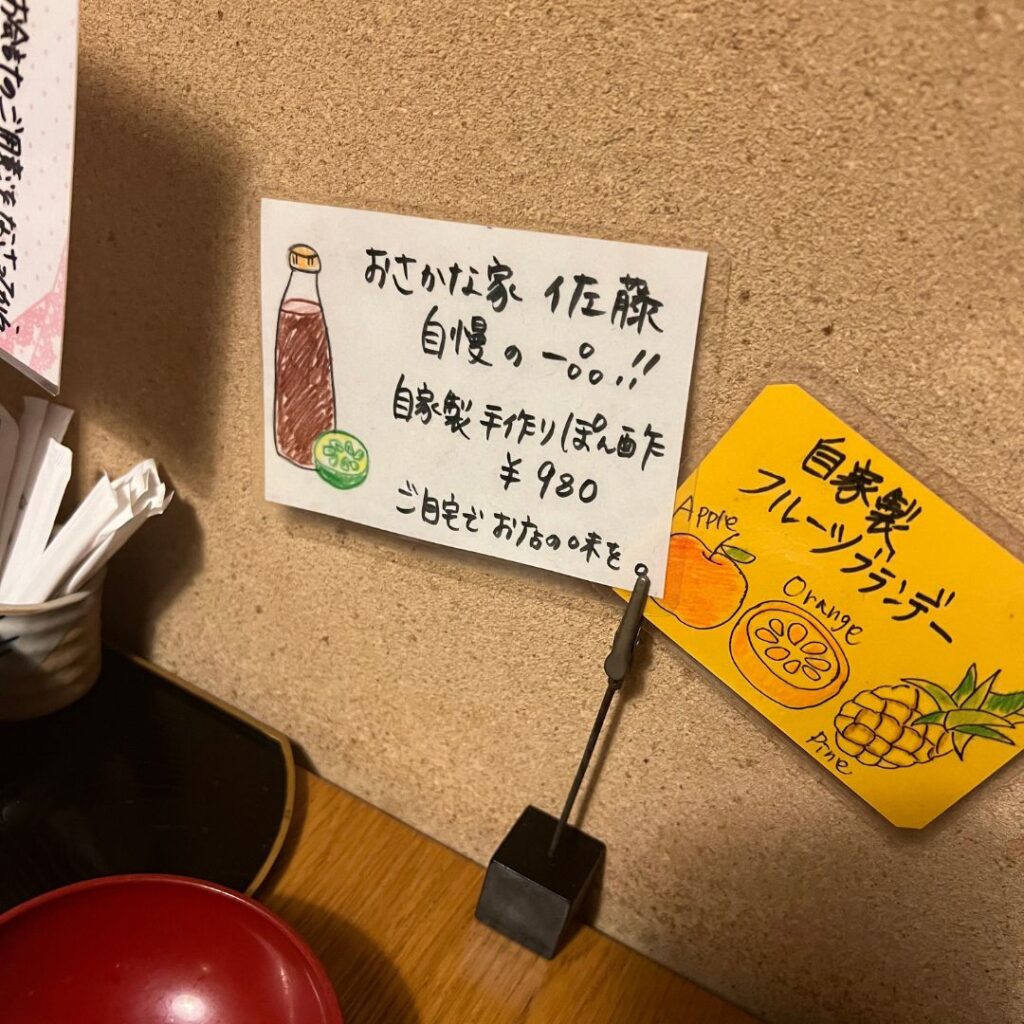 おさかな家 佐藤
自慢の一品!!
自家製 手作り ぽん酢
¥980
ご自宅で お店の味を。
自家製
フルーツブランデー
Apple
Orange
Pine